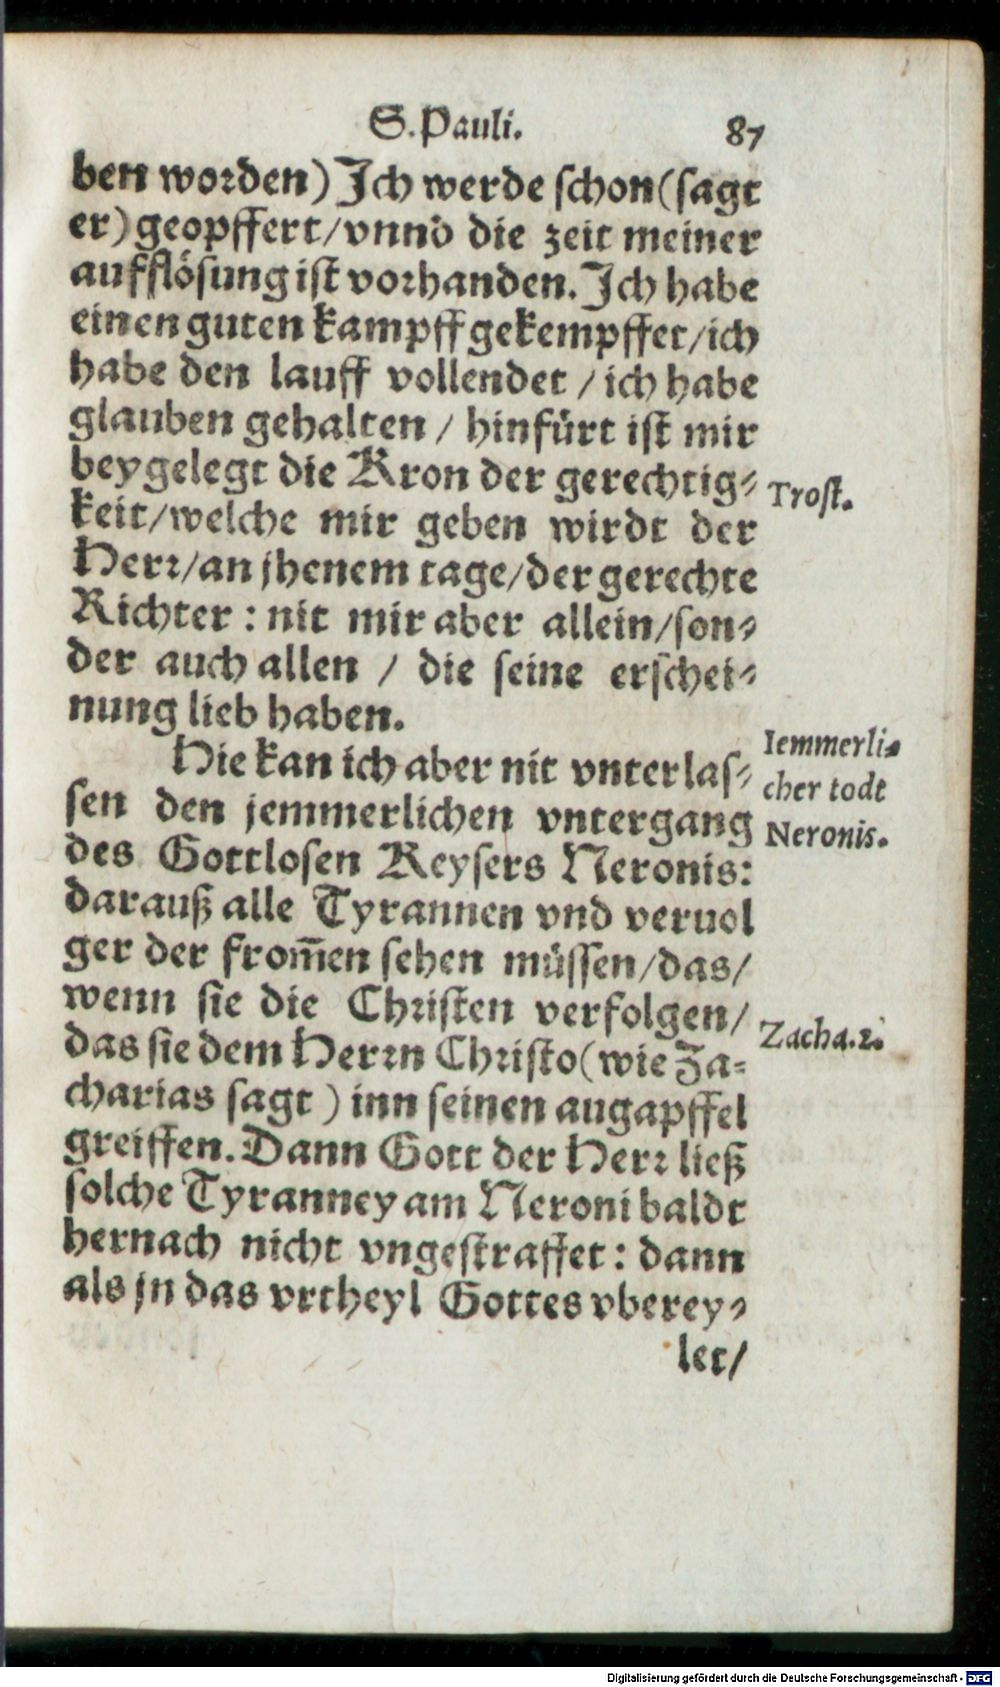 S. Pauli. 87
ben worden) Ich werde schon (sagt
er) geopffert / vnnd die zeit meiner
aufflösung ist vorhanden. Ich habe
einen guten kampff gekempffet / ich
habe den lauff vollendet / ich habe
glauben gehalten / hinfürt ist mir
beygelegt die Kron der gerechtig⸗
Trost.
keit / welche mir geben wirdt der
Herr / an jhenem tage / der gerechte
Richter : nit mir aber allein / son⸗
der auch allen / die seine erschei⸗
nung lieb haben.
Hie kan ich aber nit vnterlas⸗
Iemmerli⸗
cher todt
Neronis.
sen den jemmerlichen vntergang
des Gottlosen Keysers Neronis:
darauß alle Tyrannen vnd veruol
ger der from̄en sehen müssen / das /
wenn sie die Christen verfolgen /
Zacha. 2.
das sie dem Herrn Christo (wie Za⸗
charias sagt ) inn seinen augapffel
greiffen. Dann Gott der Herr ließ
solche Tyranney am Neroni baldt
hernach nicht vngestraffet : dann
als jn das vrtheyl Gottes vberey⸗
let /
Digitalisierung gefördert durch die Deutsche Forschungsgemeinschaft - DFG